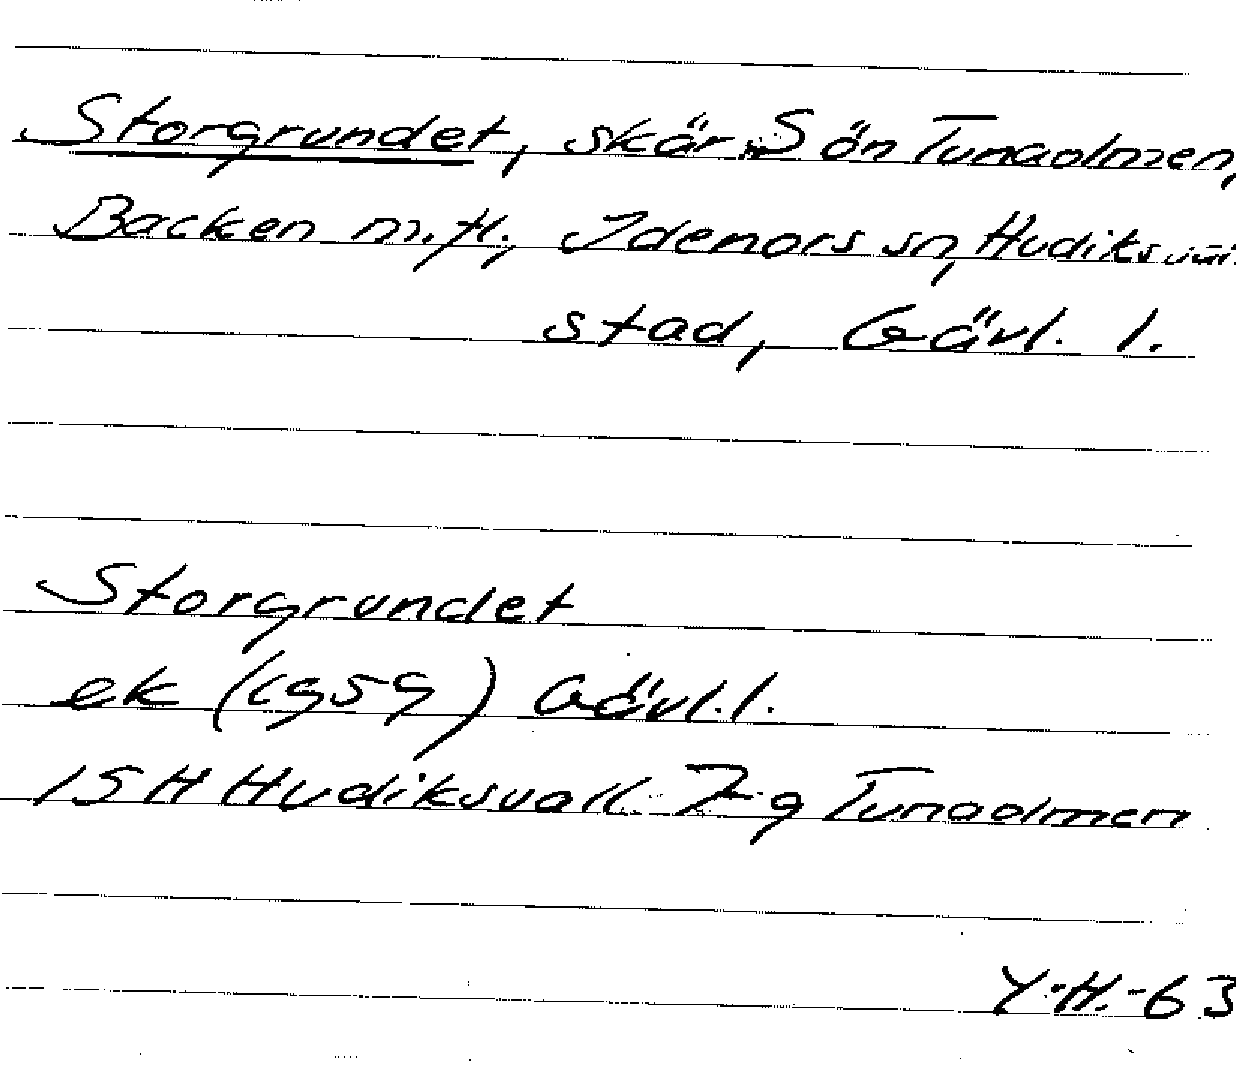 Storgrundet, skär S ön Tunaolmen,
Backen m.fl., Idenors sn, Hudiksvall
stad, Gävl. l.
Storgrundet
ek (1959) Gävl.l.
15H Hudiksvall 7g Tunaolmen
Y.H.-63